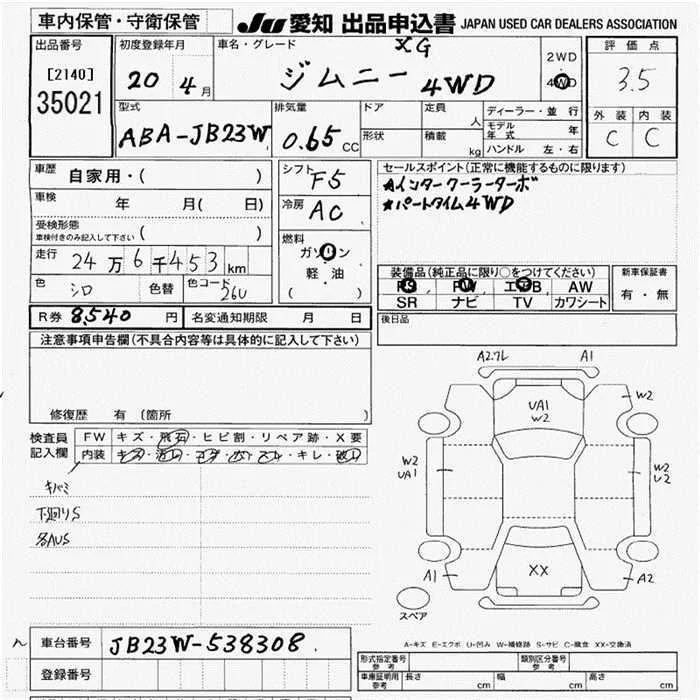 車内保管・守衛保管
JU 愛知 出品申込書 JAPAN USED CAR DEALERS ASSOCIATION
出品番号
[2140]
35021
初度登録年月
20 4月
車名・グレード
XG
ジムニー 4WD
2WD
4WD
評価点
3.5
外装 内装
C C
型式
ABA-JB23W
排気量
0.65 CC
ドア
形状
定員
人
積載
kg
ディーラー・並行
モデル年式 年
ハンドル 左・右
車歴
自家用・( )
車検
年 月( 日)
受検形態
車検付きのみ記入して下さい ( )
走行
24万6千453km
色
シロ
色替
色コード
26U
シフト
F5
冷房
AC
燃料
ガソリン
軽油
( )
セールスポイント(正常に機能するものに限ります)
★インタークーラーターボ
★パートタイム4WD
装備品(純正品に限り○をつけてください)
PS PW エアB AW
SR ナビ TV カワシート
新車保証書
有・無
R券 8,540 円
名変通知期限 月 日
後日品
注意事項申告欄(不具合内容等は具体的に記入して下さい)
修復歴 有 (箇所 )
検査員
記入欄
FW キズ・飛石・ヒビ割・リペア跡・X要
内装 キズ・汚レ・コゲ・穴・スレ・キレ・破レ
キバミ
下廻りS
各AUS
A2.7L A1
UA1
W2
W2
W2
UA1
W2
U2
XX
A1
A2
スペア
A-キズ E-エクボ U-凹み W-補修跡 S-サビ C-腐食 XX-交換済
車台番号
JB23W-538308.
登録番号
形式指定番号
参考
類別区分番号
参考
車庫証明用
参考
長さ cm 幅 cm 高さ cm